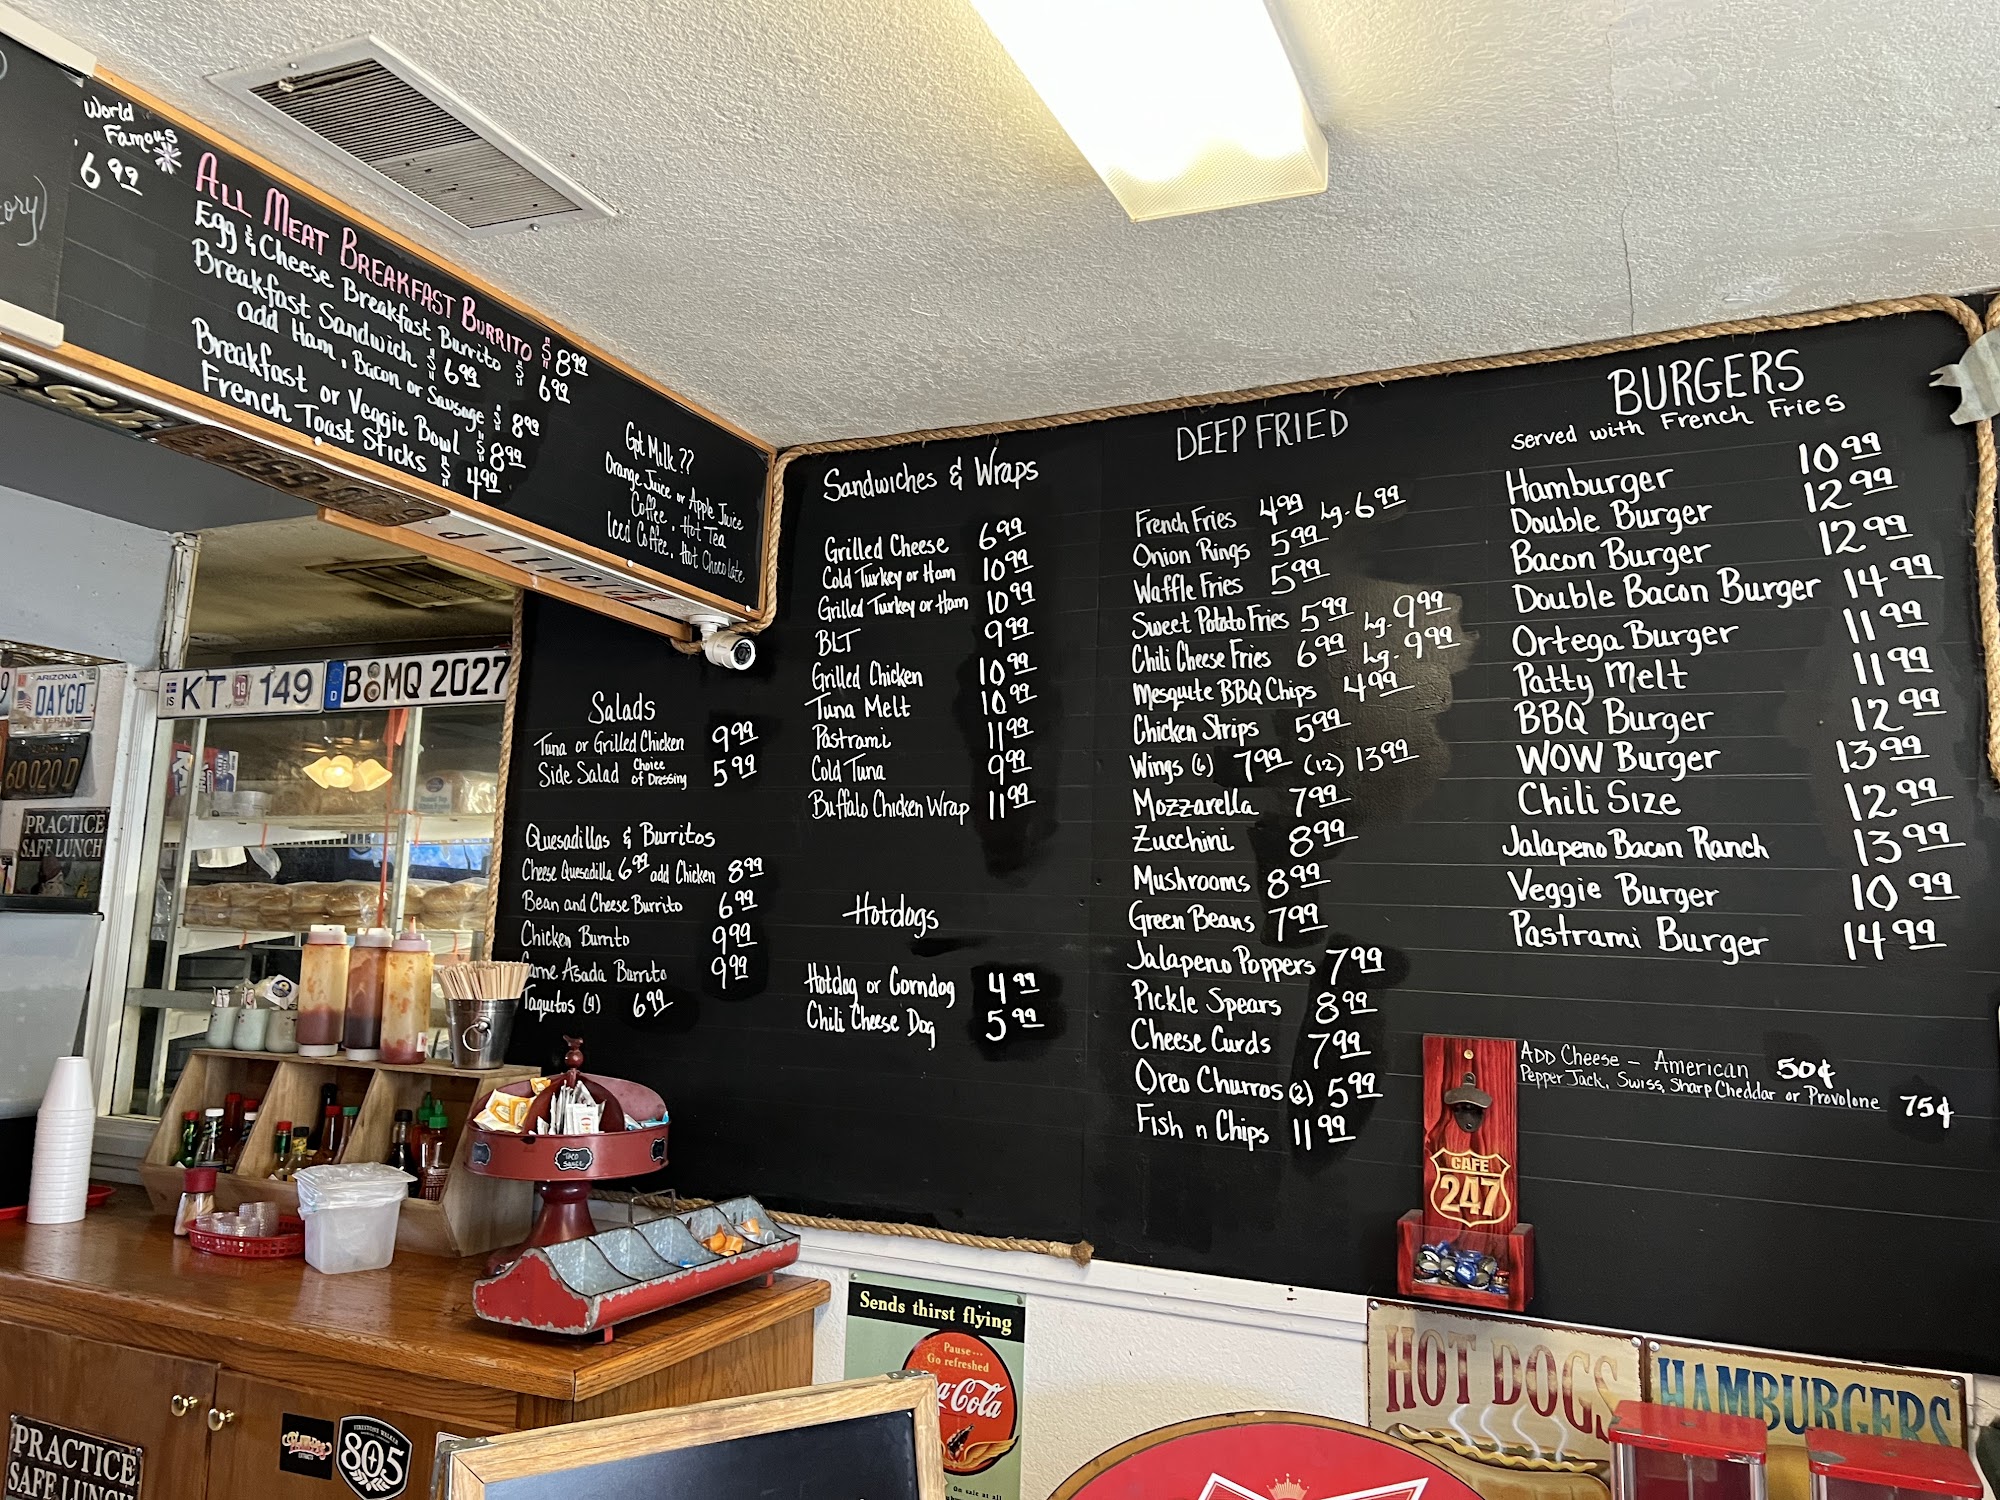 ory)
World
Famous
6 99
ALL MEAT BREAKFAST BURRITO $8 99
Egg & Cheese Breakfast Burrito $6 99
Breakfast Sandwich $6 99
add Ham, Bacon or Sausage $8 99
Breakfast or Veggie Bowl $8 99
French Toast Sticks $4 99
Got Milk??
Orange Juice or Apple Juice
Coffee, Hot Tea
Iced Coffee, Hot Chocolate
ARIZONA
DAYGO
VETERAN
60020D
PRACTICE
SAFE LUNCH
IS KT 19 149
D B MQ 2027
Salads
Tuna or Grilled Chicken 9 99
Side Salad Choice of Dressing 5 99
Quesadillas & Burritos
Cheese Quesadilla 6 99 add Chicken 8 99
Bean and Cheese Burrito 6 99
Chicken Burrito 9 99
Carne Asada Burrito 9 99
Taquitos (4) 6 99
Sandwiches & Wraps
Grilled Cheese 6 99
Cold Turkey or Ham 10 99
Grilled Turkey or Ham 10 99
BLT 9 99
Grilled Chicken 10 99
Tuna Melt 10 99
Pastrami 11 99
Cold Tuna 9 99
Buffalo Chicken Wrap 11 99
Hotdogs
Hotdog or Corndog 4 99
Chili Cheese Dog 5 99
DEEP FRIED
French Fries 4 99 Lg. 6 99
Onion Rings 5 99
Waffle Fries 5 99
Sweet Potato Fries 5 99 Lg. 9 99
Chili Cheese Fries 6 99 Lg. 9 99
Mesquite BBQ Chips 4 99
Chicken Strips 5 99
Wings (6) 7 99 (12) 13 99
Mozzarella 7 99
Zucchini 8 99
Mushrooms 8 99
Green Beans 7 99
Jalapeno Poppers 7 99
Pickle Spears 8 99
Cheese Curds 7 99
Oreo Churros (2) 5 99
Fish n Chips 11 99
BURGERS
served with French Fries
Hamburger 10 99
Double Burger 12 99
Bacon Burger 12 99
Double Bacon Burger 14 99
Ortega Burger 11 99
Patty Melt 11 99
BBQ Burger 12 99
WOW Burger 13 99
Chili Size 12 99
Jalapeno Bacon Ranch 13 99
Veggie Burger 10 99
Pastrami Burger 14 99
ADD Cheese - American 50¢
Pepper Jack, Swiss, Sharp Cheddar or Provolone 75¢
CAFE
247
TACO
SAUCE
Sends thirst flying
Pause...
Go refreshed
Coca-Cola
On sale at all
HOT DOGS
HAMBURGERS
PRACTICE
SAFE LUNCH
FIRESTONE WALKER
805